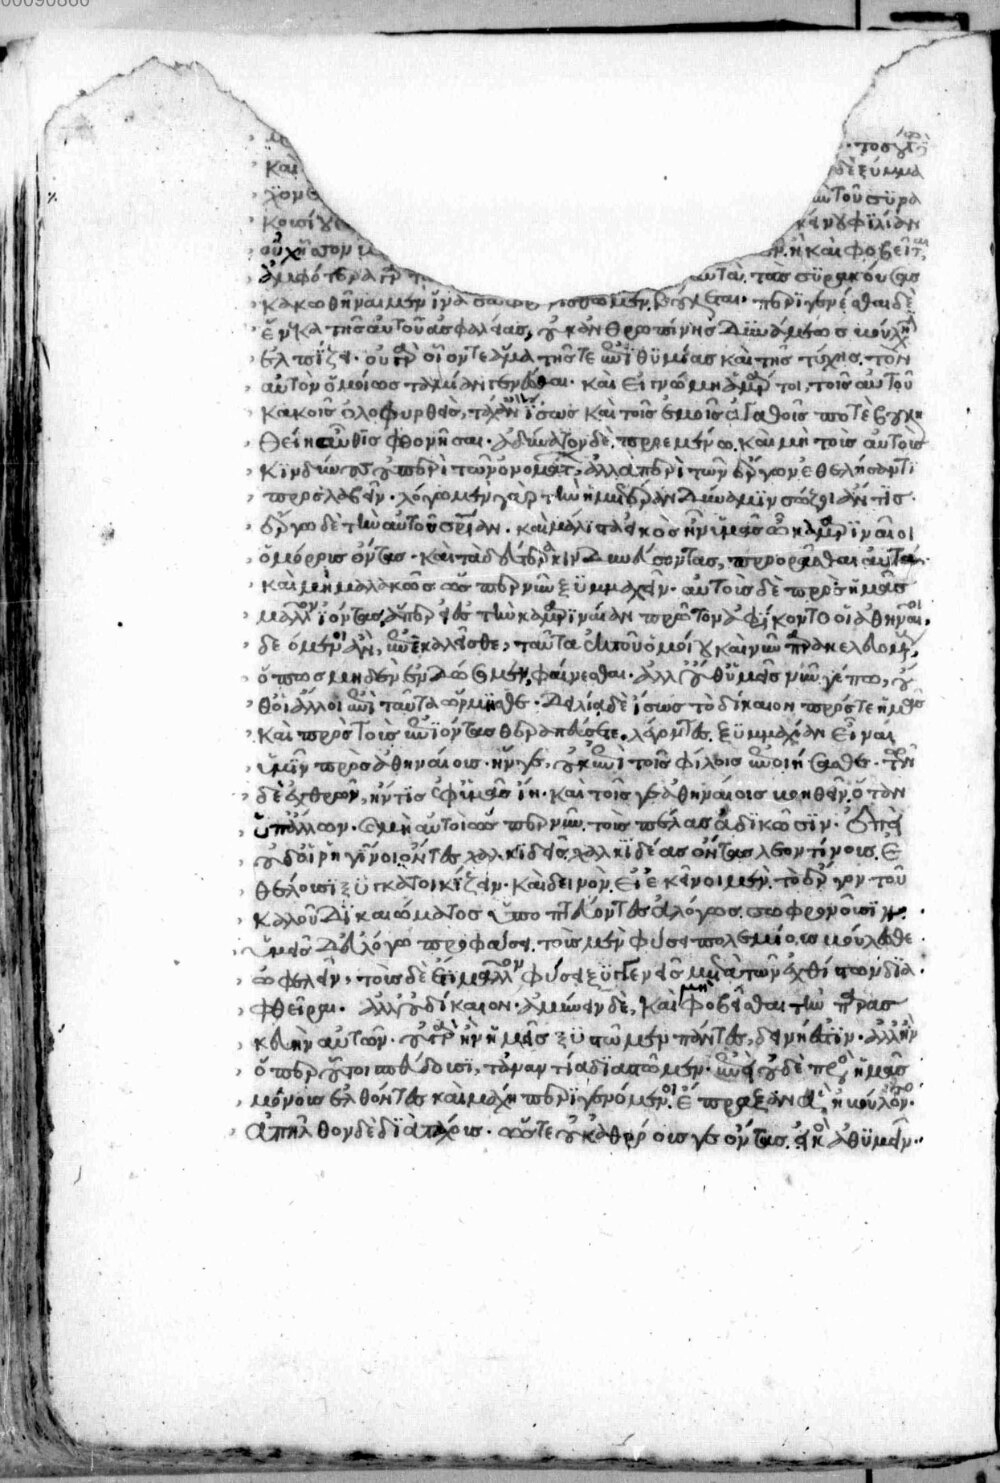 00090860
τοσούτῳ
καὶ δὲ ξύμμα
χον αὐτοῦ συρα
κοσί γε κείνου φιλίαν
οὐχ ἧσσον ἢ καὶ φοβεῖται
ἀμφότερα γὰρ αὐτὰ τὰς συρακούσας
κακωθῆναι μὲν ἵνα σωφρ νισθῶμεν βούλεται· περιγενέσθαι δὲ
ἕνεκα τῆς αὐτοῦ ἀσφαλείας, οὐκ ἀνθρωπίνης δυνάμεως βούλησιν
ἐλπίζει· οὐ γὰρ οἷόν τε ἅμα τῆς τε ἐπιθυμίας καὶ τῆς τύχης. τὸν
αὐτὸν ὁμοίως ταμίαν γενέσθαι· καὶ εἰ γνώμῃ ἁμάρτοι, τοῖς αὐτοῦ
κακοῖς ὀλοφυρθείς, τάχ' ἂν ἴσως καὶ τοῖς ἐμοῖς ἀγαθοῖς ποτὲ βουλη
θείη αὖθις φθονῆσαι· ἀδύνατον δὲ προεμένῳ καὶ μὴ τοὺς αὐτοὺς
κινδύνους οὐ περὶ τῶν ὀνομάτων, ἀλλὰ περὶ τῶν ἔργων ἐθελήσαντι
προσλαβεῖν· λόγῳ μὲν γὰρ τὴν ἡμετέραν δύναμιν σώζοι ἄν τις·
ἔργῳ δὲ τὴν αὑτοῦ σωτηρίαν· καὶ μάλιστα εἰκὸς ἦν ὑμᾶς ὦ καμαριναῖοι
ὁμόρους ὄντας· καὶ τὰ δεύτερα κινδυνεύσοντας, προορᾶσθαι αὐτὰ
καὶ μὴ μαλακῶς ὥσπερ νῦν ξυμμαχεῖν· αὐτοὺς δὲ πρὸς ἡμᾶς
μᾶλλον ἰόντας, ἅπερ εἰ ἐς τὴν καμαριναίαν πρῶτον ἀφίκοντο οἱ ἀθηναῖοι,
δεόμενοι ἂν, ἐπεκαλεῖσθε, ταῦτα ἐκ τοῦ ὁμοίου καὶ νῦν παρακελευομένους,
ὅπως μηδὲν ἐνδώσομεν, φαίνεσθαι· ἀλλ' οὔθ' ὑμεῖς νῦν γέ πω, οὔ
θ' οἱ ἄλλοι ἐπὶ ταῦτα ὥρμησθε· δειλίᾳ δὲ ἴσως τὸ δίκαιον πρός τε ἡμᾶς
καὶ πρὸς τοὺς ἐπιόντας θεραπεύσετε, λέγοντες ξυμμαχίαν εἶναι
ὑμῖν πρὸς ἀθηναίους· ἥν γε, οὐκ ἐπὶ τοῖς φίλοις ἐποιήσασθε· τῶν
δὲ ἐχθρῶν, ἤν τις ἐφ' ὑμᾶς ἴῃ· καὶ τοῖς γε ἀθηναίοις βοηθεῖν, ὅταν
ὑπ' ἄλλων· καὶ μὴ αὐτοὶ ὥσπερ νῦν τοὺς πέλας ἀδικῶσιν· ἐπεὶ
οὐδ' οἱ ῥηγῖνοι ὄντες χαλκιδεῖς, χαλκιδέας ὄντας λεοντίνους ἐ
θέλουσι ξυγκατοικίζειν· καὶ δεινόν, εἰ ἐκεῖνοι μὲν τὸ ἔργον τοῦ
καλοῦ δικαιώματος ὑποπτεύοντες ἀλόγως σωφρονοῦσιν·
ὑμεῖς δ' εὐλόγῳ προφάσει, τοὺς μὲν φύσει πολεμίους βούλεσθε
ὠφελεῖν, τοὺς δὲ ἔτι μᾶλλον φύσει ξυγγενεῖς μετὰ τῶν ἐχθίστων δια
φθεῖραι· ἀλλ' οὐ δίκαιον· ἀμύνειν δὲ, καὶ μὴ φοβεῖσθαι τὴν παρασ
κευὴν αὐτῶν· οὐ γὰρ ἢν ἡμεῖς ξυστῶμεν πάντες, δεινή ἐστιν· ἀλλ' ἢν
ὅπερ οὗτοι σπεύδουσι, τἀναντία διαστῶμεν· ἐπεὶ οὐδὲ πρὸς ἡμᾶς
μόνους ἐλθόντες καὶ μάχῃ περιγενόμενοι ἔπραξαν ἃ ἠβούλοντο·
ἀπῆλθον δὲ διὰ τάχους· ὥστε οὐκ ἀθρόους γε ὄντας, εἰκὸς ἀθυμεῖν·